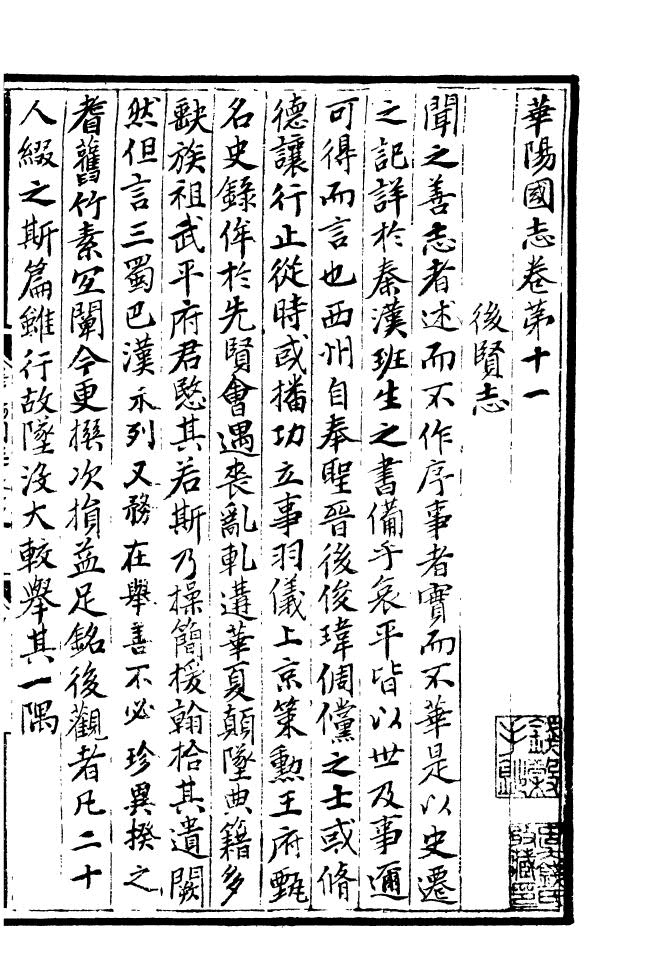 華陽國志卷第十一
後賢志
聞之善志者述而不作序事者實而不華是以史遷
之記詳於秦漢班生之書備乎哀平皆以世及事邇
可得而言也西州自奉聖晉後俊瑋倜儻之士或脩
德讓行止從時或播功立事羽儀上京策勳王府甄
名史錄侔於先賢會遇喪亂軋遘華夏顛墜典籍多
缺族祖武平府君愍其若斯乃操簡援翰拾其遺闕
然但言三蜀巴漢不列又務在舉善不必珍異揆之
耆舊竹素宜闡今更撰次損益足銘後觀者凡二十
人綴之斯篇雖行故墜沒大較舉其一隅